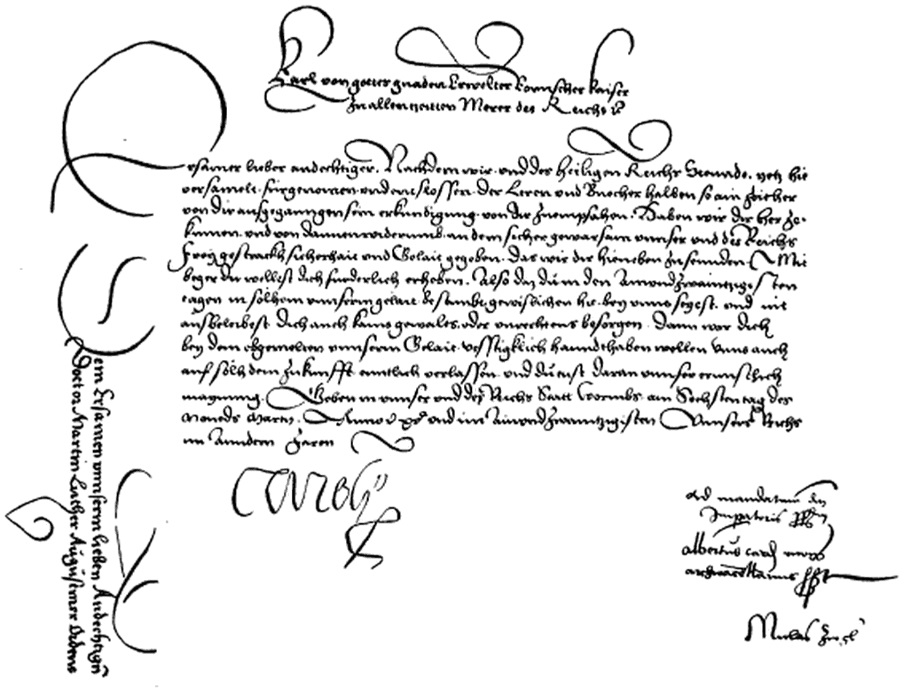 Karl von gottes gnaden Erwelter Romischer kaiser
zu allen zeitten Merer des Reichs ꝛc
Ersamer lieber andechtiger. Nachdem wir und des heiligen Reichs Stennde, yetz hie
versamelt, fürgenomen und entslossen, der Leren und Buecher halben so ain zeither
von dir ausgegangen sein erkundigung von dir zuempfahen. Haben wir dir her zu
kumen, und von dannen widerumb an dein sicher gewarsam unnser und des Reichs
Frey gestrackh sicherhait und Gelait gegeben, das wir dir hieneben zusennden. Mit
beger du wellest dich furderlich erheben. Also das du in den ainundzwaintzigisten
tagen in solhem unnserm gelait bestimbt gewislichen hie bey unns seyest, und nit
ausbeleibest, dich auch kains gewalts oder unrechtens besorgen. Dann wir dich
bey dem obgemelten unnserm Gelait vesstigklich hanndthaben wellen, unns auch
auf solh dein zukunfft enntlich verlassen, und du tust daran unnser ernnstlich
maynung. Geben in unnser und des Reichs Statt Wormbs am Sechsten tag des
Moneds Marcy. Anno ꝛc xvᶜ und im ainundzwaintzigisten Unnsers Reichs
im anndern Jaren
Carolus
Ad mandatum
Imperatoris
albertus card
archicancellarius
Niclas
Dem Ersamen unnserm lieben Andechtigen
Doctor Martin Luther Augustiner Ordens